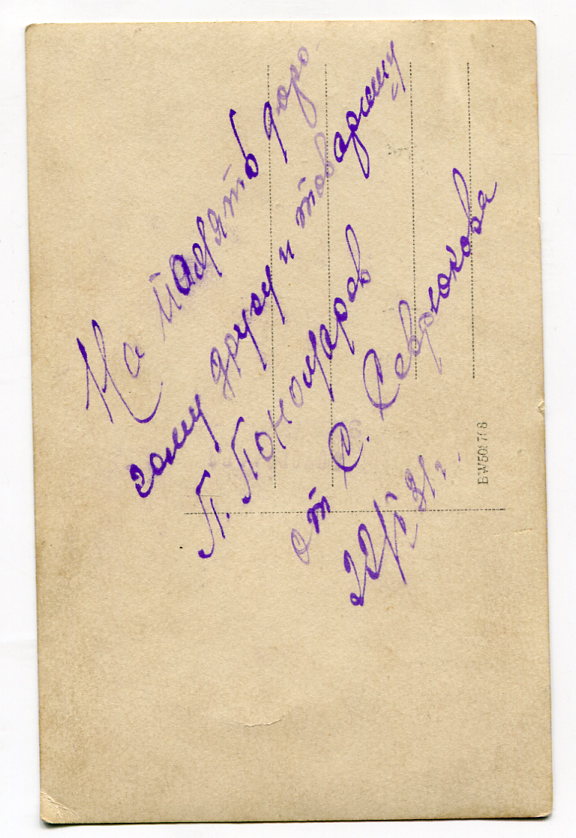 На память доро
гому другу и товарищу
П. Пономарев
от С. Севрюкова
22/VI 31 г.